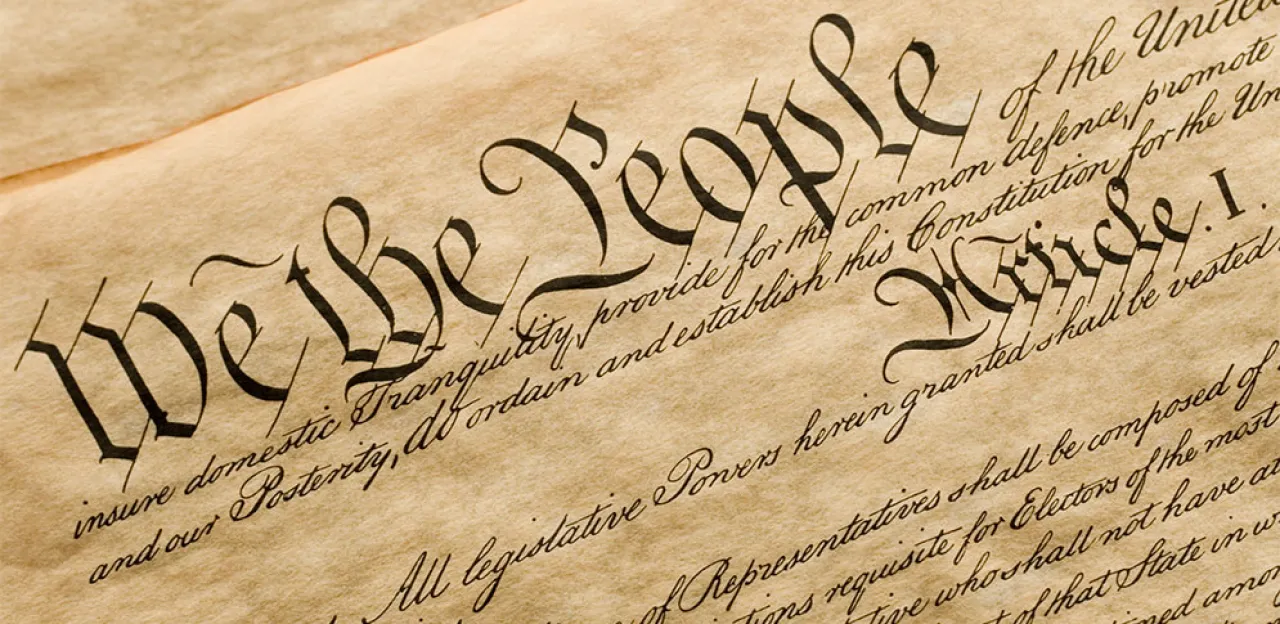 We the People of the United
insure domestic Tranquility, provide for the common defence, promote
and our Posterity, do ordain and establish this Constitution for the Un
Article. I.
All legislative Powers herein granted shall be vested
of Representatives shall be composed of
tions requisite for Electors of the most
tive who shall not have at
of that State in w
ined amon